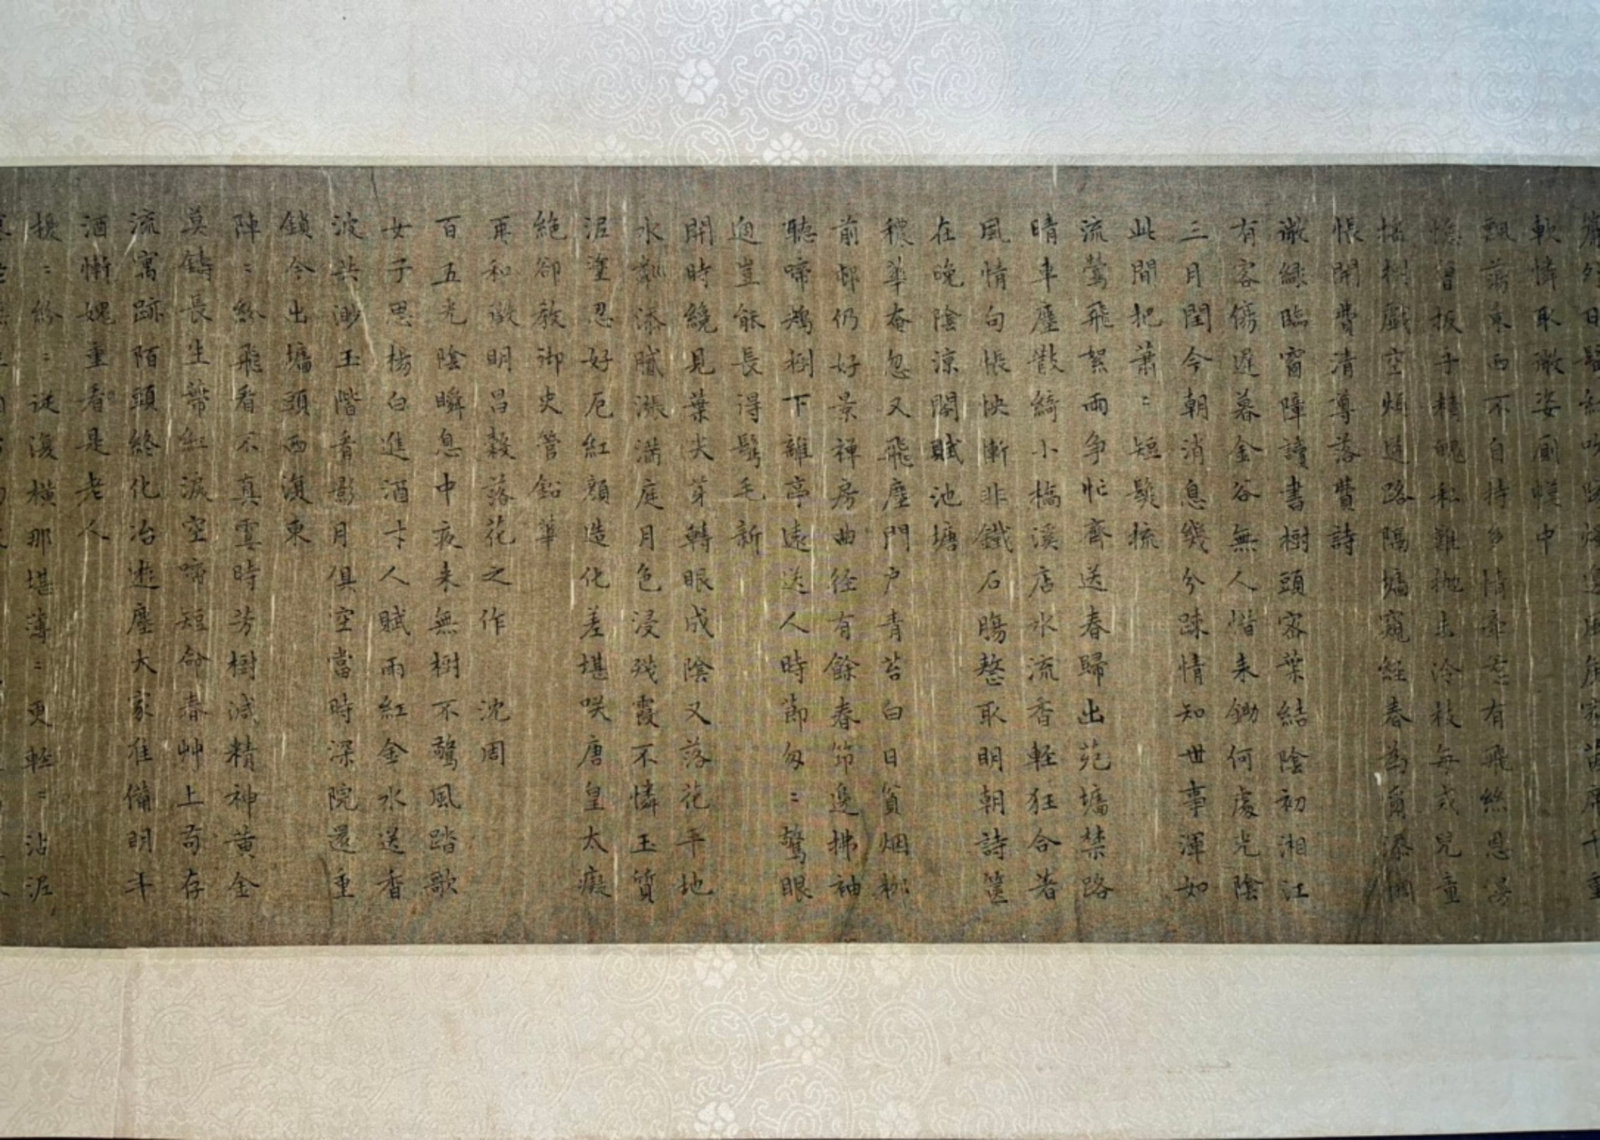 簾外日驕紅
軟憐取微姿廁幔中
飄蕩東西不自持 有飛絲恩
憶曾扳手精魄私難拋去冷枝每戒兒童
搖樹戲空煩 路隔墻窺經春為爾添
恨開費清尊落費詩
漵綠臨窗障讀書樹頭密葉結陰初湘江
有客傷遲暮金谷無人惜未鋤何處光陰
三月閏今朝消息幾分疎情知世事渾如
此間把蕭〻短髮梳
流鶯飛絮兩爭忙齊送春歸出苑墻禁路
晴車塵散綺小橋溪店水流香輕狂合著
風情句悵怏漸非鐵石腸愁取明朝詩篋
在晚陰涼閣賦池塘
穠華奄忽又飛塵門戶青苔白日貧烟
前邨仍好景禅房曲径有餘春筇邊拂袖
聽啼鴂樹下離亭遠送人時節匆〻驚眼
過豈能長得鬢毛新
開時纔見葉尖芽轉眼成陰又落花平地
水 添膩漲滿庭月色浸殘霞不憐玉質
泥塗忍好厄紅顏造化差堪咲唐皇太癡
絕卻教御史管鉛華
再和徵明昌穀落花之作 沈周
百五光陰瞬息中夜来無樹不驚風踏歌
女子思楊白進酒才人賦雨紅金水送香
波共渺玉階看影月俱空當時深院還重
鎖今出墻頭西復東
陣〻紛飛看不真霎時芳樹減精神黃金
莫鑄長生蒂紅淚空啼短命春艸上苟存
流寓跡陌頭終化冶遊塵大家准備明年
酒慚媿重看是老人
擾〻紛〻從復橫那堪薄〻更輕〻沾泥